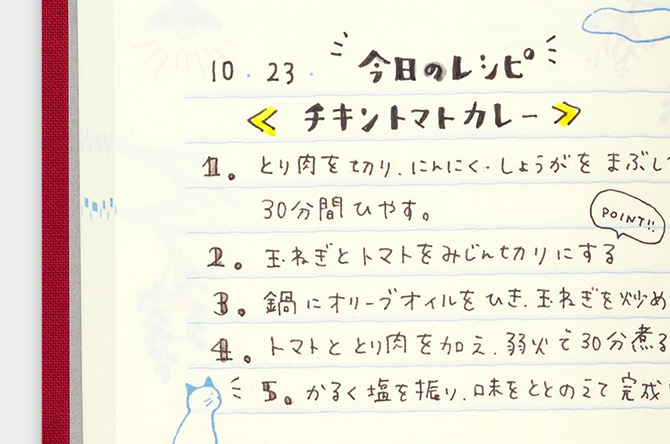 10・23・ 今日のレシピ
≪ チキントマトカレー ≫
1. とり肉を切り、にんにく・しょうがを まぶし
30分間ひやす。
POINT!!
2. 玉ねぎとトマトをみじん切りにする
3. 鍋にオリーブオイルをひき、玉ねぎを炒め
4. トマトととり肉を加え、弱火で30分煮る
5. かるく塩を振り、味をととのえて完成